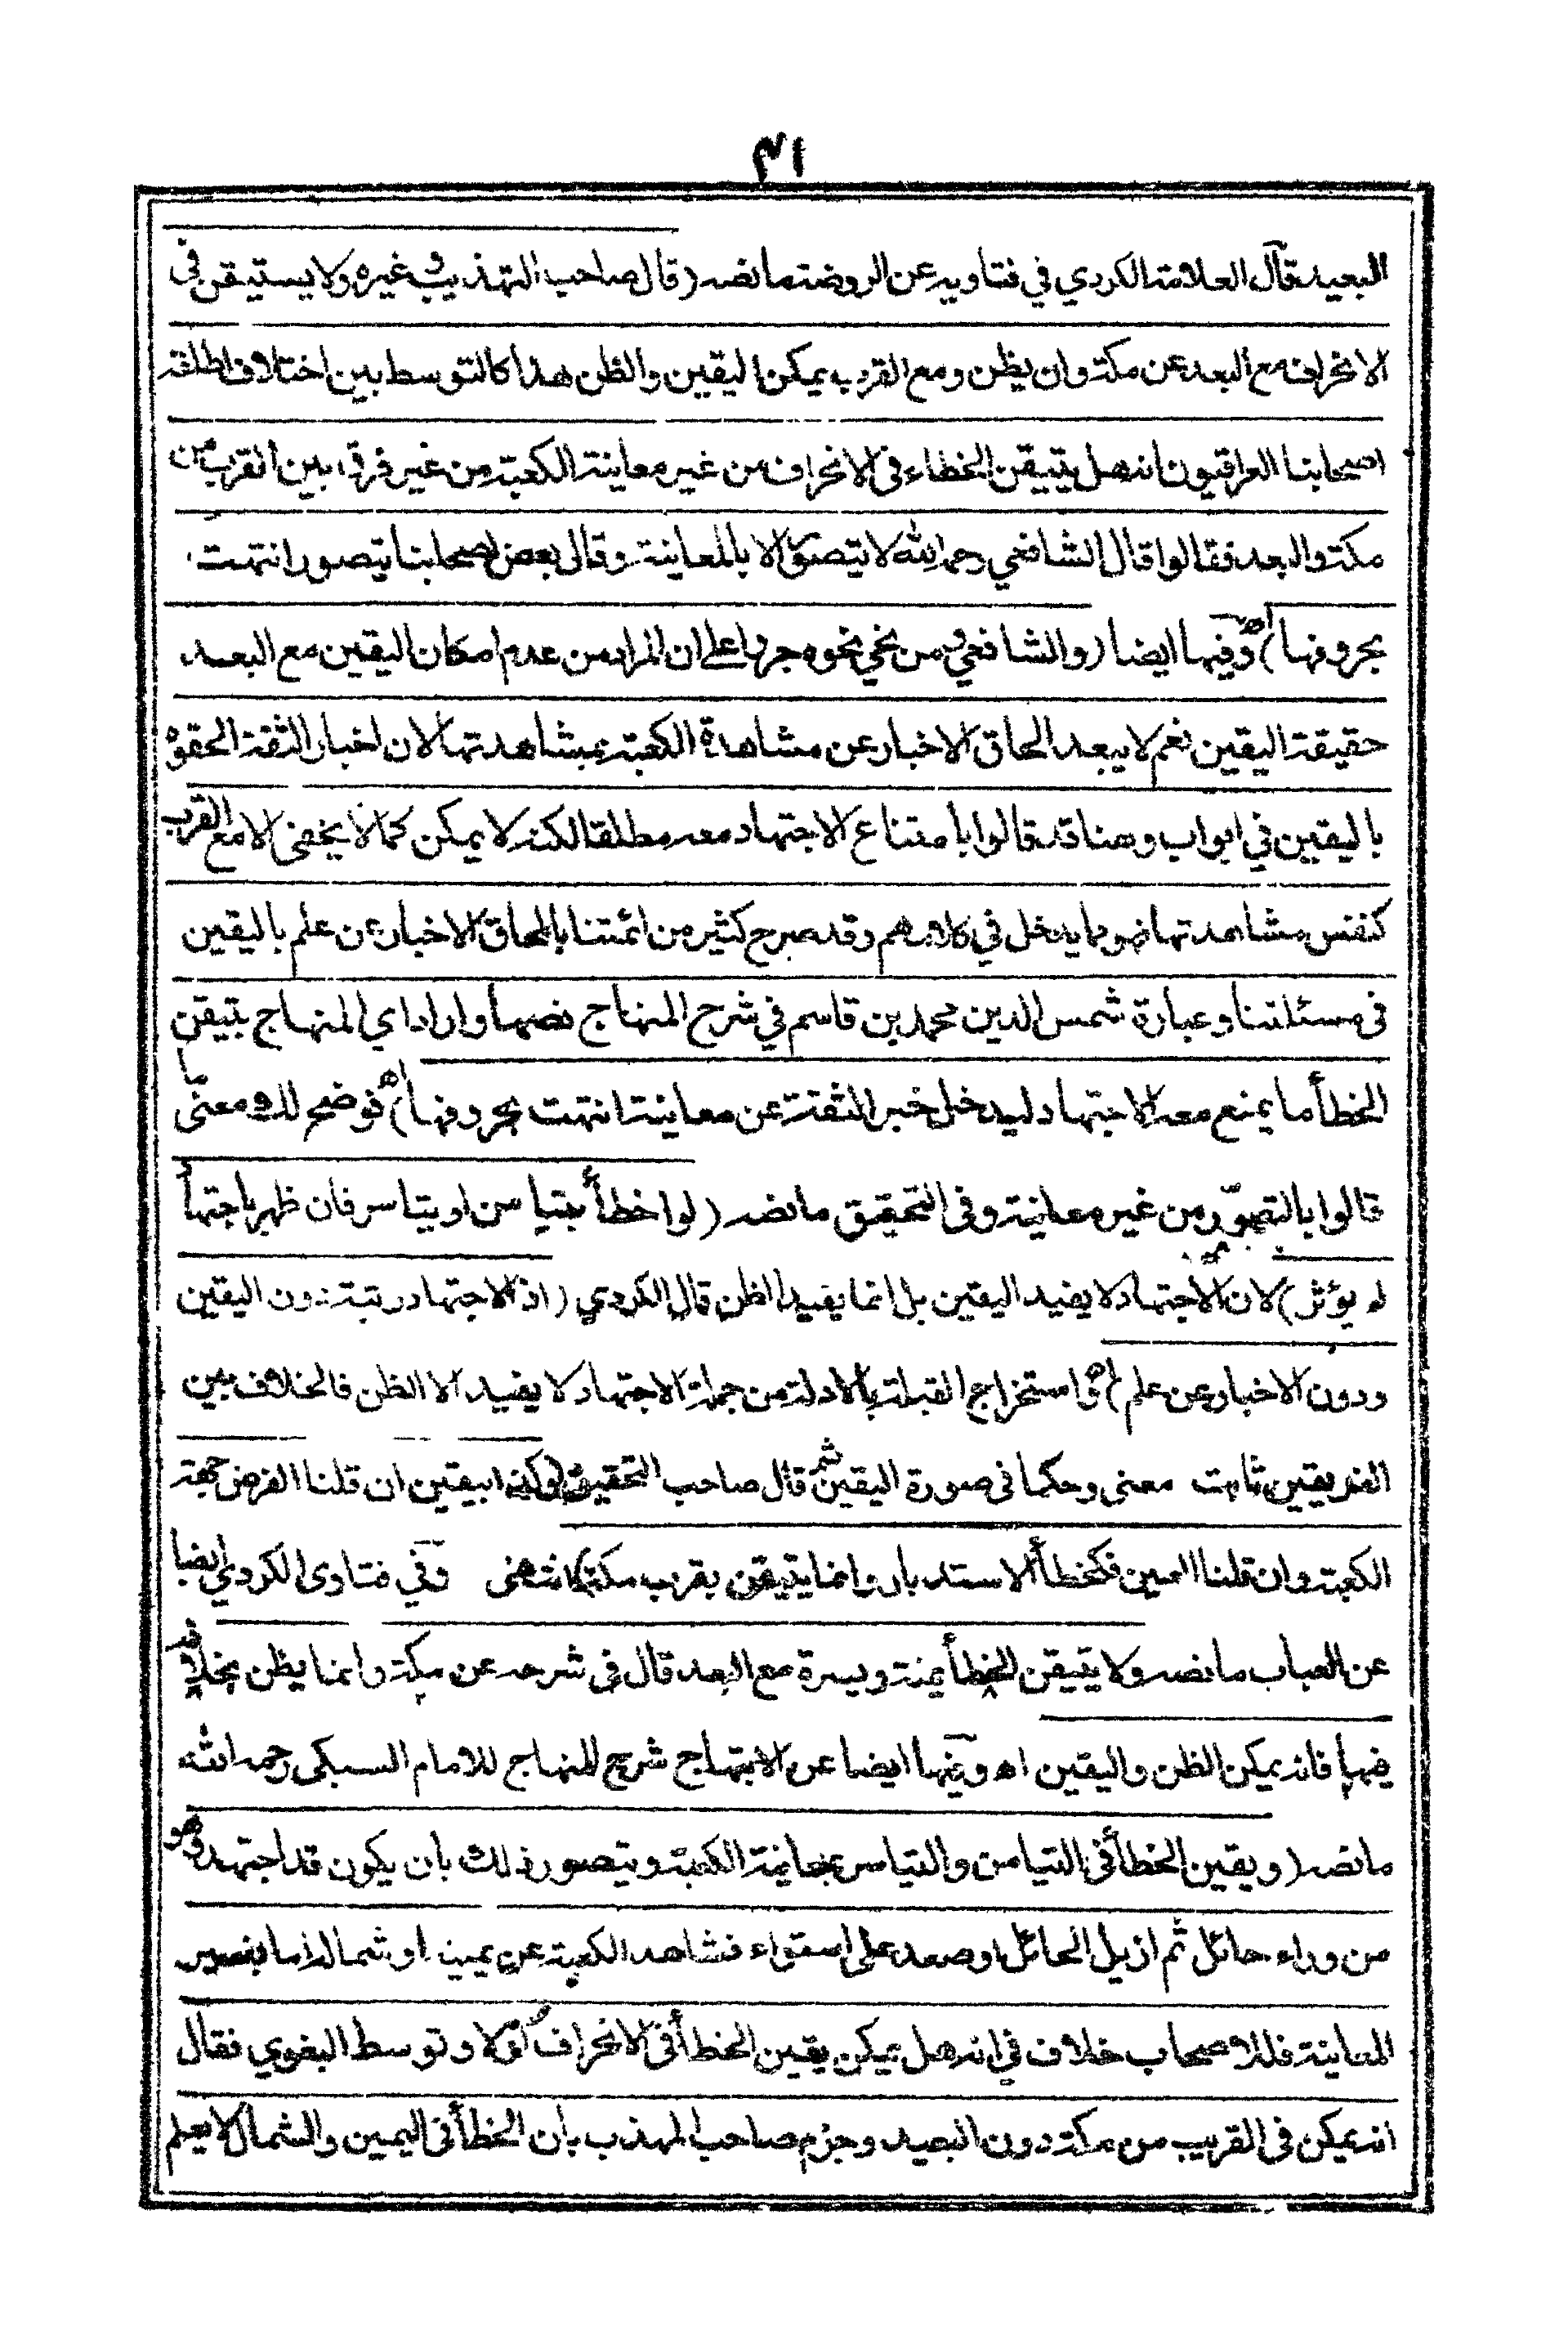 ٣١
البعيد قال العلامة الكردي في فتاويه عن الروضة ما نصه (قال صاحب التهذيب وغيره ولا يستيقن في
الانحراف مع البعد عن مكة وان يظن ومع القرب يمكن اليقين والظن هذا كالتوسط بين اختلاف اطلقه
اصحابنا العراقيون انه هل يتيقن الخطاء في الانحراف من غير معاينة الكعبة من غير فرق بين القرب من
مكة والبعد فقالوا قال الشافعي رحمه الله لا يتصور الا بالمعاينة وقال بعض اصحابنا يتصور انتهت
بحروفها) اه وفيها ايضا (والشافعي ومن نحي نحوه جروا على ان المراد من عدم امكان اليقين مع البعد
حقيقة اليقين نعم لا يبعد الحاق الاخبار عن مشاهدة الكعبة بمشاهدتها لان اخبار الثقة الحقوه
باليقين في ابواب وهنا قد قالوا بأمتناع الاجتهاد معه مطلقا لكنه لا يمكن كما لا يخفى الا مع القرب
كنفس مشاهدتها فهو مما يدخل في كلامهم وقد صرح كثير من ائمتنا بالحاق الاخبار عن علم باليقين
في مسئلتنا وعبارة شمس الدين محمد بن قاسم في شرح المنهاج نصها واراد اي المنهاج بتيقن
الخطأ ما يمنع معه الاجتهاد ليدخل خبر الثقة عن معاينة انتهت بحروفها) اه فوضح لك معنى ما
قالوا بالتصور من غير معاينة وفي التحقيق ما نصه (لو اخطأ بتيامن او بتياسر فان ظهر باجتهاد
لم يؤثر) لان الاجتهاد لا يفيد اليقين بل انما يفيد الظن قال الكردي (اذ الاجتهاد رتبة دون اليقين
ودون الاخبار عن علم) اه واستخراج القبلة بالادلة من جملة الاجتهاد لا يفيد الا الظن فالخلاف بين
الفريقين ثابت معنى وحكما في صورة اليقين ثم قال صاحب التحقيق ابيقين ان قلنا الفرض جهة
الكعبة وان قلنا العين فكخطأ الاستدبار وانما يتيقن بقرب مكة) انتهى وفي فتاوى الكردي ايضا
عن العباب ما نصه ولا يتيقن الخطأ يمنة ويسرة مع البعد قال في شرحه عن مكة وانما يظن بخلاف
فيها فانه يمكن الظن واليقين اه وفيها ايضا عن الابتهاج شرح المنهاج للامام السبكي رحمه الله
ما نصه (ويقين الخطأ في التيامن والتياسر بمعاينة الكعبة ويتصور ذلك بان يكون قد اجتهد وهو
من وراء حائل ثم ازيل الحائل او صعد على استواء فشاهد الكعبة عن يمينه او شماله اما بغير
المعاينة فللاصحاب خلاف في انه هل يمكن يقين الخطأ في الانحراف اولا وتوسط البغوي فقال
انه يمكن في القريب من مكة دون البعيد وجزم صاحب المهذب بأن الخطأ في اليمين والشمال لا يعلم